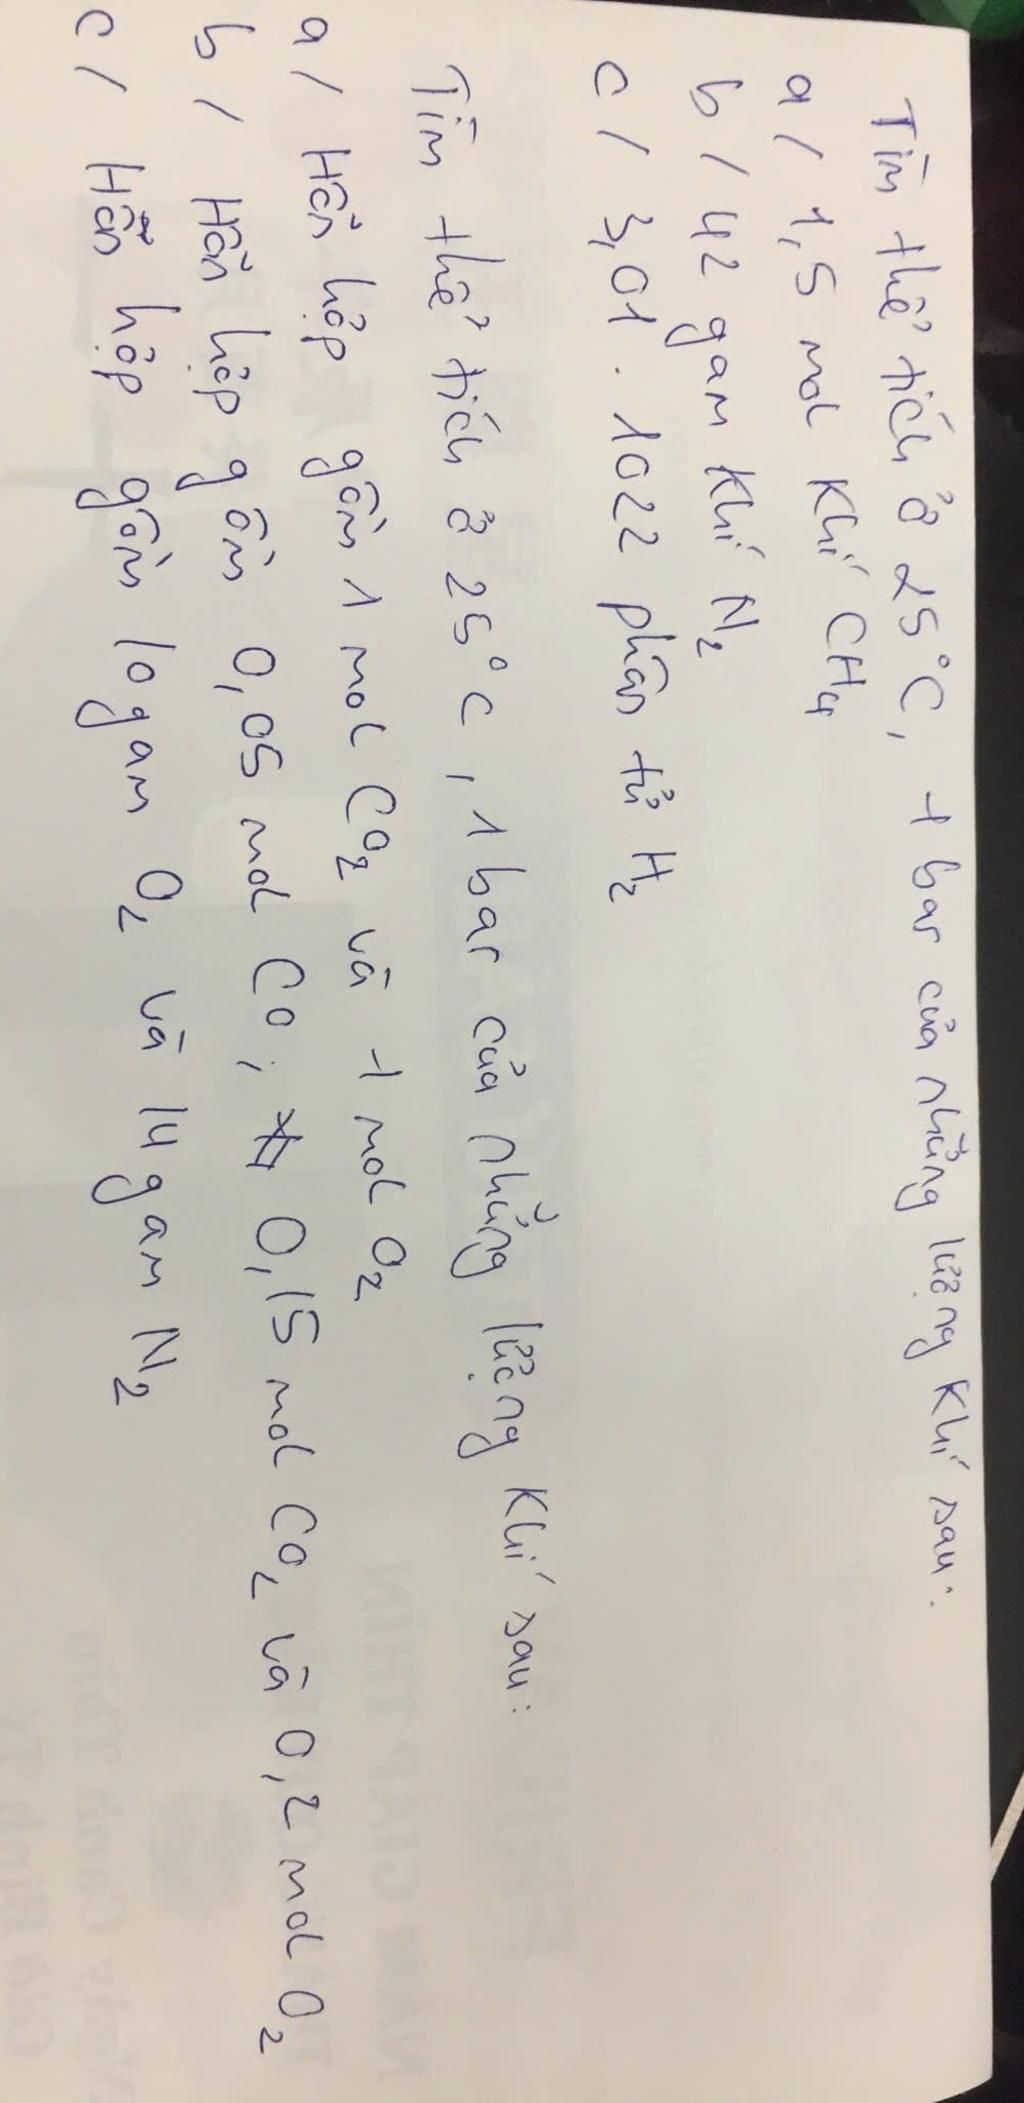 Tìm thể tích ở 25°C, 1 bar của những lượng khí sau:
a/ 1,5 mol khí CH₄
b/ 42 gam khí N₂
c/ 3,01 . 1022 phân tử H₂
Tìm thể tích ở 25°C, 1 bar của những lượng khí sau:
a/ Hỗn hợp gồm 1 mol CO₂ và 1 mol O₂
b/ Hỗn hợp gồm 0,05 mol CO; 0,15 mol CO₂ và 0,2 mol O₂
c/ Hỗn hợp gồm 10 gam O₂ và 14 gam N₂